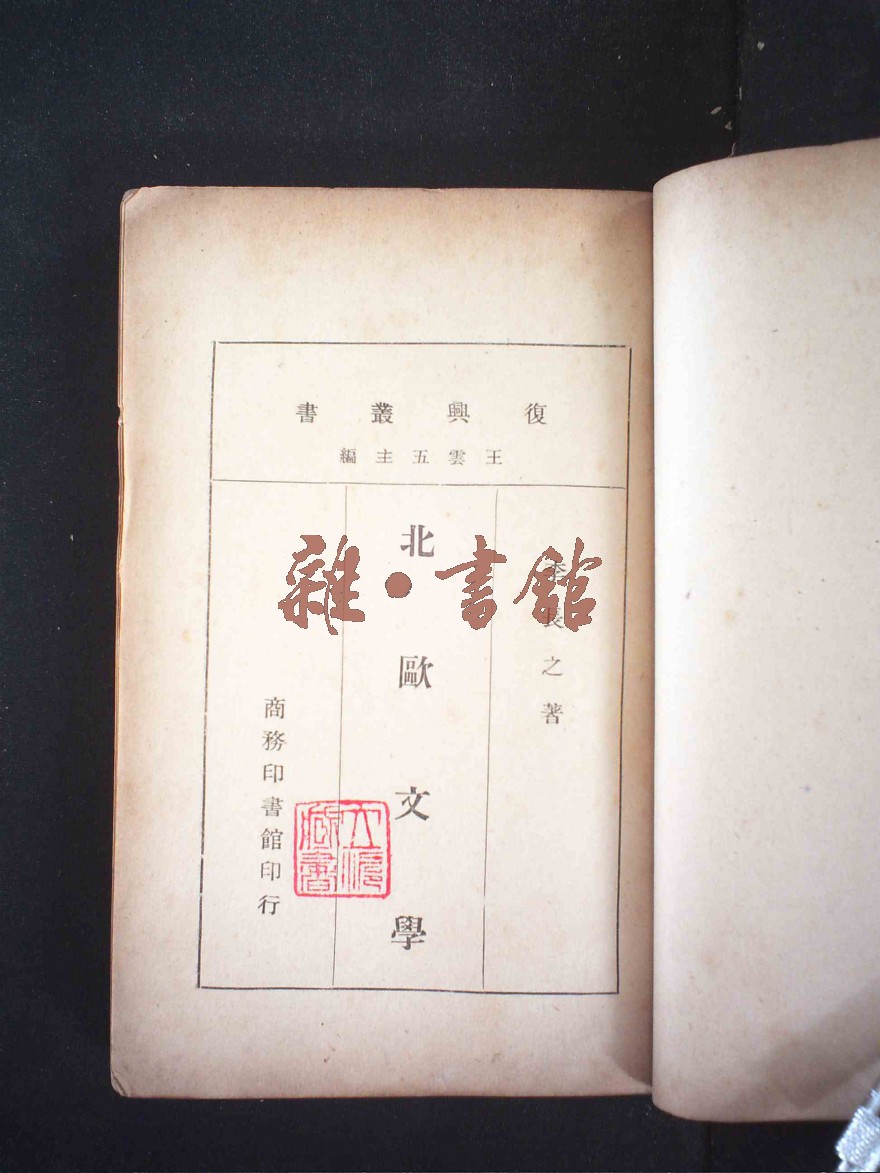 復興叢書
王雲五主編
李長之著
北歐文學
商務印書館印行
雜·書館